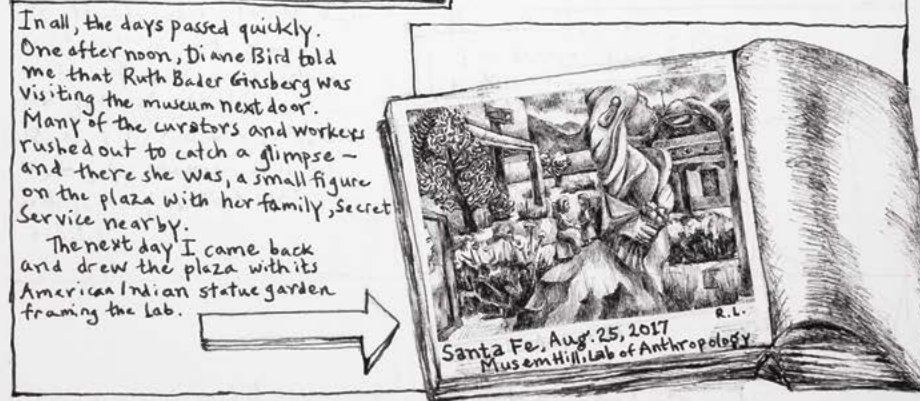 In all, the days passed quickly.
One afternoon, Diane Bird told
me that Ruth Bader Ginsberg was
visiting the museum next door.
Many of the curators and workers
rushed out to catch a glimpse –
and there she was, a small figure
on the plaza with her family, Secret
Service nearby.
The next day I came back
and drew the plaza with its
American Indian statue garden
framing the Lab.
R.L.
Santa Fe, Aug. 25, 2017
Musem Hill, Lab of Anthropology